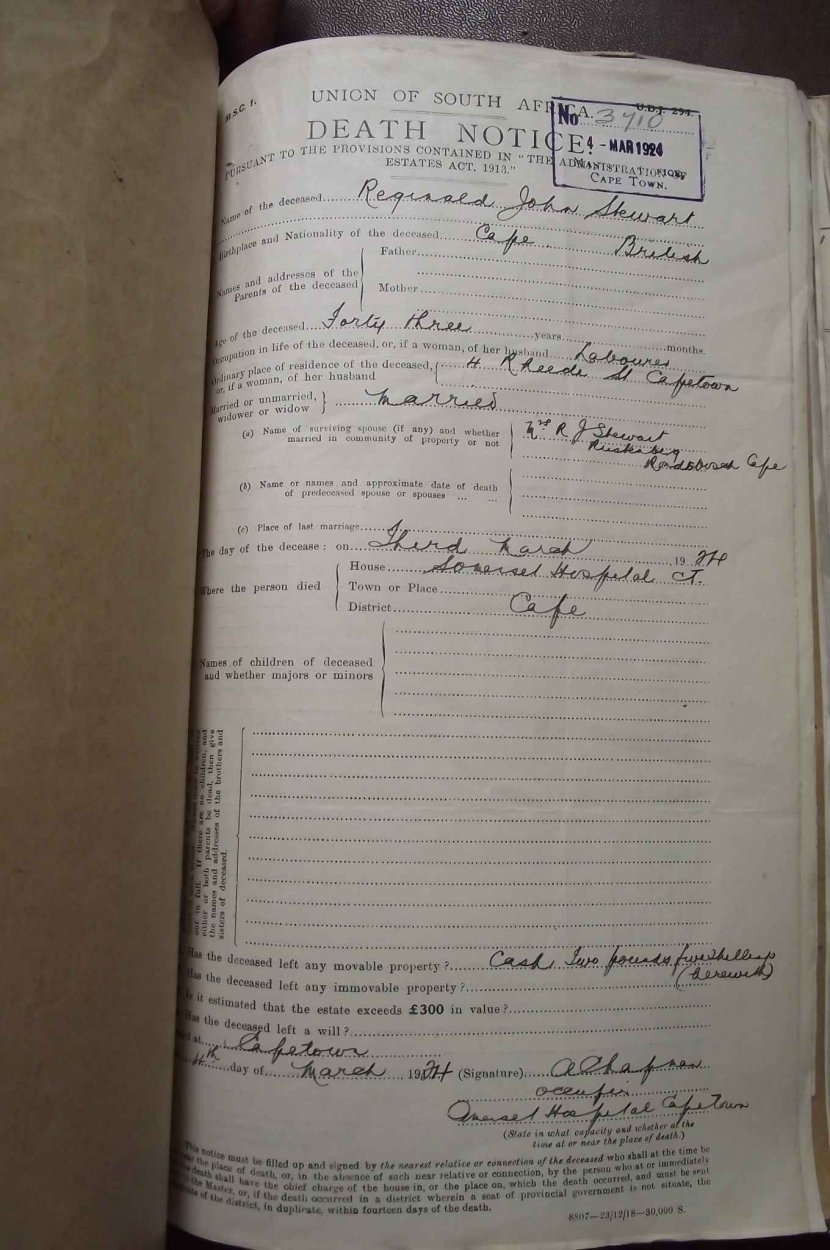 M.S.C. 1.
U.D.J. 294.
UNION OF SOUTH AFRICA.
No 3710
4 - MAR 1924
CAPE TOWN.
DEATH NOTICE.
PURSUANT TO THE PROVISIONS CONTAINED IN "THE ADMINISTRATION OF
ESTATES ACT, 1913."
Name of the deceased Reginald John Stewart
Birthplace and Nationality of the deceased Cape British
Names and addresses of the
Parents of the deceased
Father
Mother
Age of the deceased Forty three years months.
Occupation in life of the deceased, or, if a woman, of her husband Labourer
Ordinary place of residence of the deceased,
or, if a woman, of her husband
4 Rheede St Capetown
Married or unmarried,
widower or widow
Married
(a) Name of surviving spouse (if any) and whether
married in community of property or not
Mrs R J Stewart
Rondebosch Cape
(b) Name or names and approximate date of death
of predeceased spouse or spouses ... ...
(c) Place of last marriage
The day of the decease: on Third March 1924
Where the person died
House Somerset Hospital CT.
Town or Place
District Cape
Names of children of deceased
and whether majors or minors
out in full. If there are no children, and
either or both parents be dead, then give
the names and addresses of the brothers and
sisters of deceased.
Has the deceased left any movable property? Cash Two pounds five shillings
(herewith)
Has the deceased left any immovable property?
Is it estimated that the estate exceeds £300 in value?
Has the deceased left a will?
Dated at Capetown
4th day of March, 1924 (Signature) A Chapman
occupier
Somerset Hospital Cape Town
(State in what capacity and whether at the
time at or near the place of death.)
This notice must be filled up and signed by the nearest relative or connection of the deceased who shall at the time be
the place of death, or, in the absence of such near relative or connection, by the person who at or immediately
death shall have the chief charge of the house in, or the place on, which the death occurred, and must be sent
the Master, or, if the death occurred in a district wherein a seat of provincial government is not situate, the
of the district, in duplicate, within fourteen days of the death.
8807—23/12/18—30,000 S.